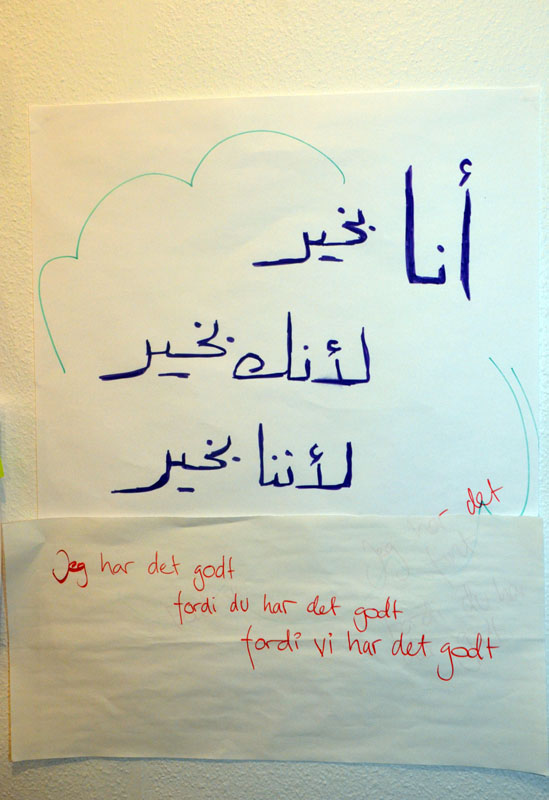 أنا بخير
لأنك بخير
لأننا بخير
det
Jeg har det godt
fordi du har det godt
fordi vi har det godt